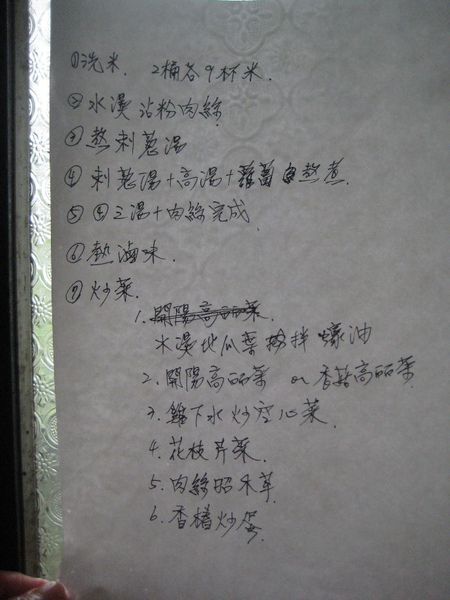 ①洗米. 2桶各9杯米.
②水燙沾粉肉絲
③熬刺蔥湯
④刺蔥湯+高湯+蘿蔔熬煮.
⑤④之湯+肉絲完成.
⑥熱滷味.
⑦炒菜.
1.開陽高丽菜.
水燙地瓜葉拌蠔油
2.開陽高丽菜 or 香菇高丽菜.
3.雞下水炒空心菜.
4.花枝芹菜.
5.肉絲昭禾草.
6.香椿炒蛋.